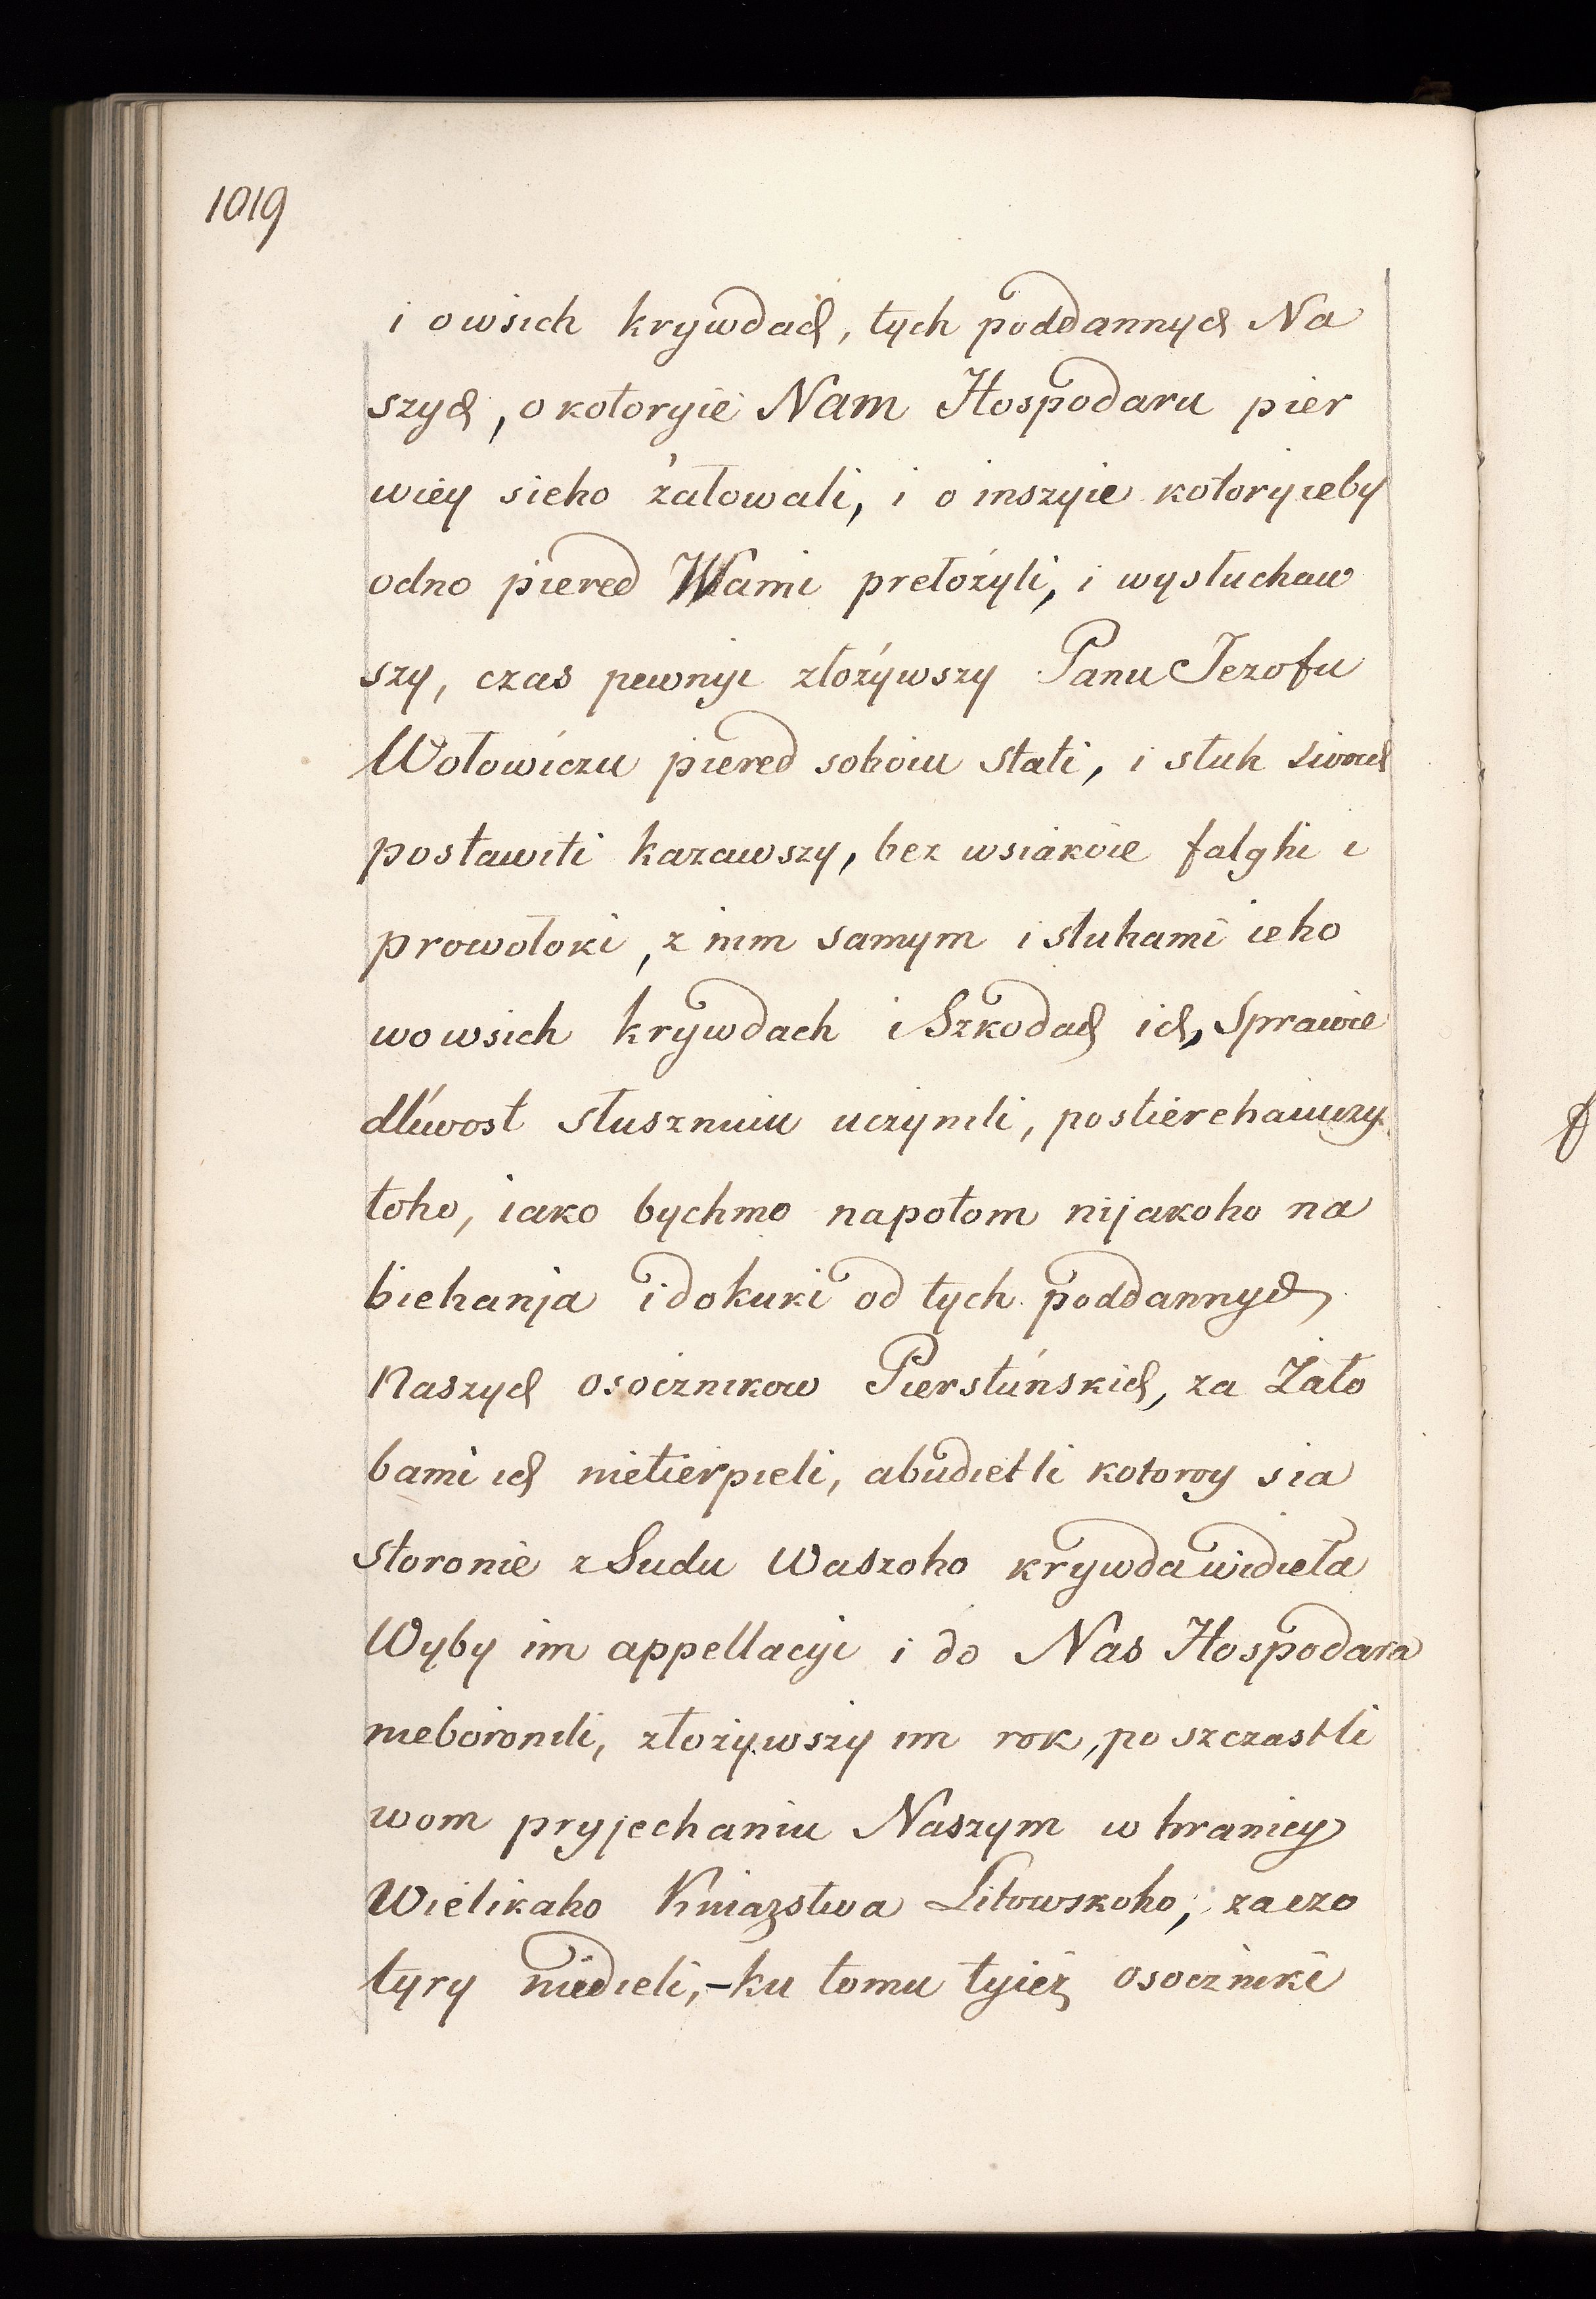 1019
i owsich krywdach, tych poddannych Na
szych, o kotoryie Nam Hospodaru pier
wiey sieho żałowali, i o inszyie kotoryieby
odno piered Wami prełożyli, i wysłuchaw
szy, czas pewnyi złożywszy Panu Jezofu
Wołowiczu piered soboiu stati, i sluh swoich
postawiti kazawszy, bez wsiakoie falghi i
prowołoki, z nim samym i sluhami ieho
wo wsich krywdach i Szkodach ich, Sprawie
dliwost słusznuiu uczynili, postierehaiuczy
toho, iako bychmo napotom nijakoho na
biehanja i dokuki od tych poddannych
Naszych osocznikow Pierstuńskich, za Żało
bami ich nietierpieli, abudietli kotoroy sia
storonie z Sudu Waszoho krywda widieła
Wyby im appellacyi i do Nas Hospodara
nieboronili, złożywszy im rok, po szczastli
wom pryjechaniu Naszym w hranicy
Wielikaho Kniazstwa Litowskoho, za czo
tyry niedieli, – ku tomu tyież osoczniki